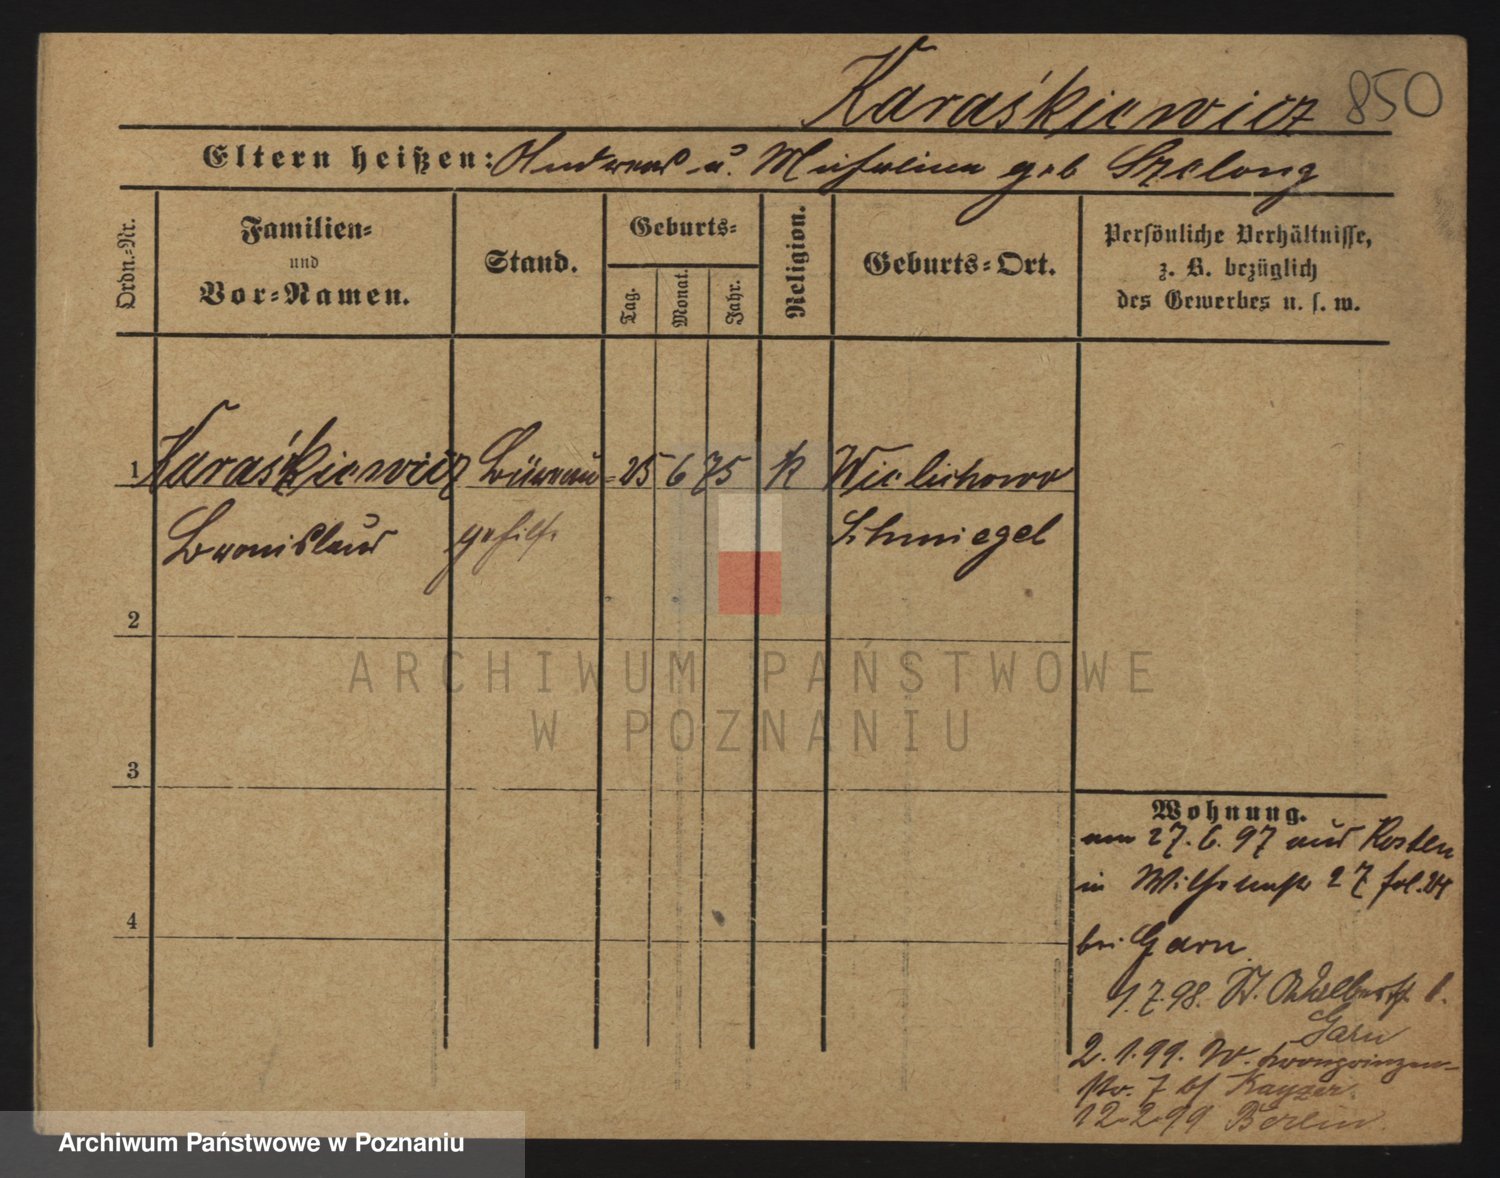 Karaśkiewicz 850
Eltern heißen: Andreas u. Michalina geb Szelong
Ordn.-Nr.
Familien-
und
Vor-Namen.
Stand.
Geburts-
Tag.
Monat.
Jahr.
Religion.
Geburts-Ort.
Persönliche Verhältnisse,
z. B. bezüglich
des Gewerbes u. s. w.
1 Karaśkiewicz Büreau- 25 6 75 K Wielichowo
Bronislaus gehilfe Schmiegel
2
3
4
Wohnung.
am 27. 6. 97 aus Kosten
in Wilhelmstr 27
bei Garn
1.7.98. W.
Garn
2. 1. 99. W. Kronprinzen-
str. 7 bei Kayzer
12.2.99 Berlin.
ARCHIWUM PAŃSTWOWE
W POZNANIU
Archiwum Państwowe w Poznaniu